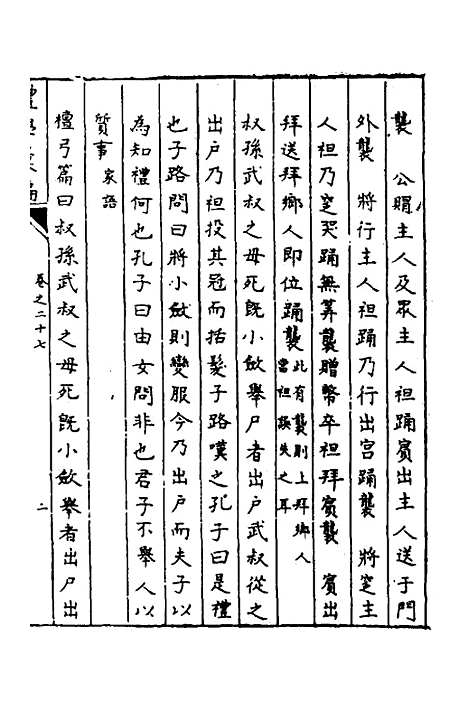 襲　公賵主人及眾主人袒踊賓出主人送于門
外襲　將行主人袒踊乃行出宮踊襲　將窆主
人袒乃窆哭踊無筭襲贈幣卒袒拜賓襲　賓出
拜送拜鄉人即位踊襲此有襲則上拜鄉人當袒誤失之耳
叔孫武叔之母死旣小斂舉尸者出户武叔從之
出户乃袒投其冠而括髮子路嘆之孔子曰是禮
也子路問曰將小斂則變服今乃出户而夫子以
為知禮何也孔子曰由女問非也君子不舉人以
質事家語
檀弓篇曰叔孫武叔之母死旣小斂舉者出尸出
卷之二十七
二